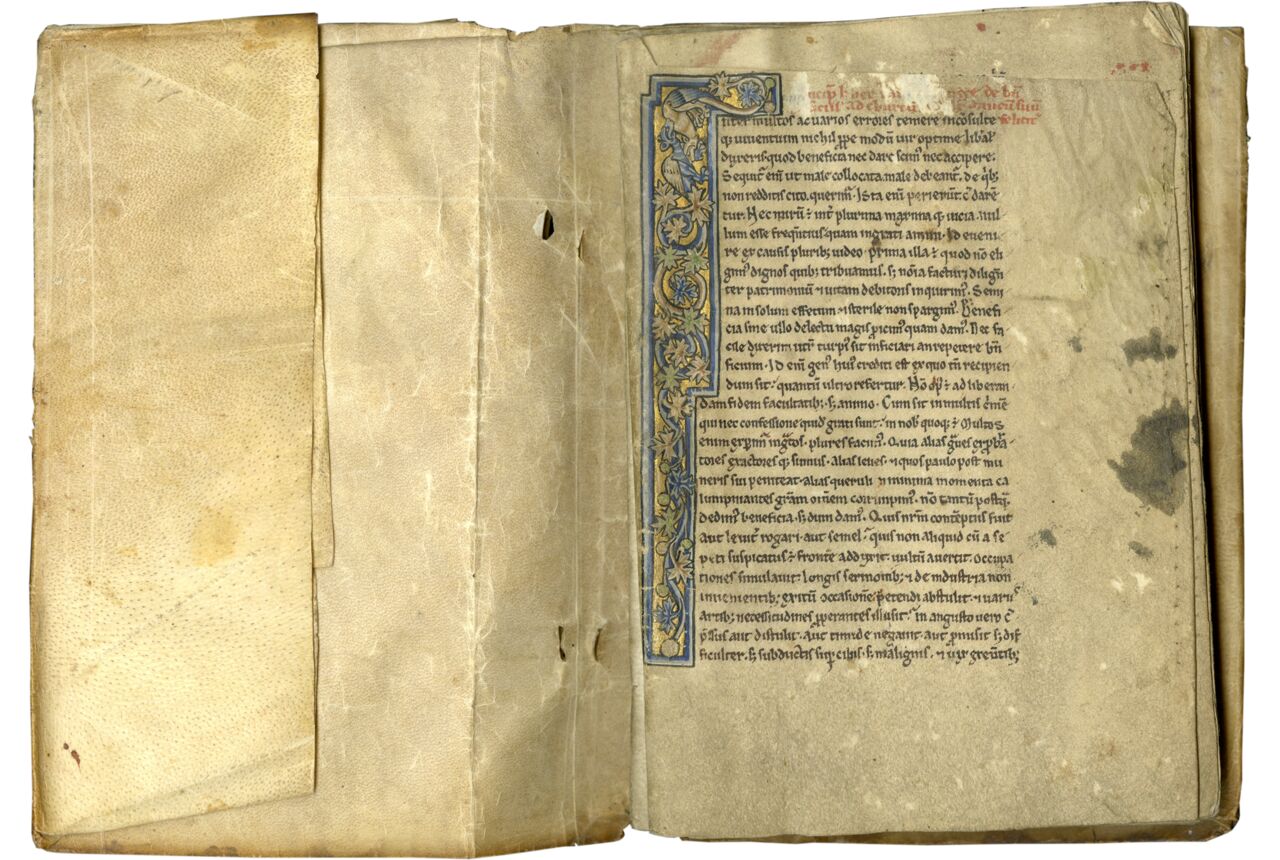 Inter multos ac uarios errores temere inconsulte
q; uiuentium nichil ppe modū uir optime libal
dyxerisquod beneficia nec dare scim nec accipere.
Sequit̄ enī ut male collocata male debeant̄. de qb;
non redditis cito querim̄. Ista enī perierūt c̄ darē
tur. Nec mirū ē int̄ plurima maxima q; uicia. nul
lum esse freq̄ntius quam ingrati animi. Id eueni
re ex causis plurib; uideo. prima illa ē quod nō eli
gim̄ dignos quib; tribuamus. s; nōīa facturi dilign̄
ter patrimoniū ⁊ uitam debitoris inquirim̄. Semi
na in solum effetum ⁊ sterile non spargim̄. Benefi
cia sine ullo delectu magis pricim̄ quam dam̄. Nec fa
cile dyxerim utr̄ turpi᷒ sit inficiari an repetere bn̄
ficium. Id enī gen᷒ hui᷒ crediti est ex quo tn̄ recipien
dum sit. quantū ultro refertur.
ad liberan
dam fidem facultatib; s; animo. Cum sit in multis
qui nec confessione quid grati sunt. in nob̄ quoq; ē Multos
enim exp̄im̄ ing̃tos. plures facim̄. Quia alias g̃ues exp̄bã
tores exactores q; sumus. alias leues. ⁊ quos paulo post mu
neris sui peniteat. alias queruli ⁊ minima momenta ca
lumpniantes gr̄am om̄em corrumpim̄. nō tantū postq̄
dedim̄ beneficia. s; dum dam̄. Quis nr̄m contēptus fuit
aut leuit̄ rogari. aut semel. quis non aliquid cū a se
peti suspicatus ē frontē addyxit. uultū auertit. occupa
tiones simulauit. longis sermonib; ⁊ de industria non
inuenientib; exitū occasionē petendi abstulit. ⁊ uariis
artib; necessitudines pperantes illusit. in angusto uero c̄
p̄ssus aut distulit. aut timide negauit. aut pmisit s; dif
ficulter. s; subductis sup̄ciliis. s; malignis. ⁊ uix exeūtib;